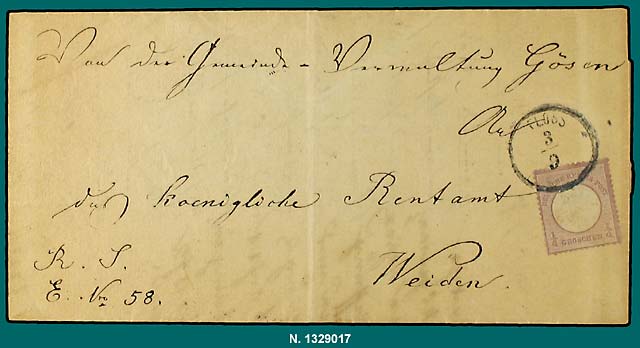 Von der Gemeinde-Verwaltung Gösen
An
FLOSS
3
9
das koenigliche Rentamt
1/4 GROSCHEN 1/4
R. S.
Weiden.
E. Nro 58.
N. 1329017